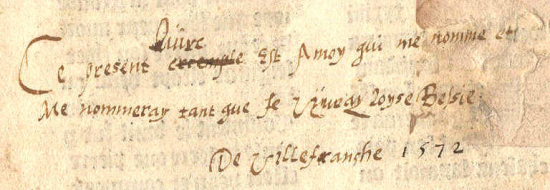 Livre
Ce present exemple Est Amoy qui me nomme et
Me nommeray tant que Je Vivray Loyse Besie
De Villefranche 1572